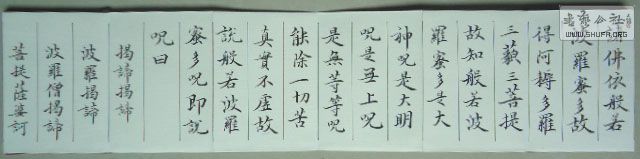 书艺公社
WWW.SHUFA.ORG
佛依般若
羅蜜多故
得阿耨多羅
三藐三菩提
故知般若波
羅蜜多是大
神咒是大明
咒是无上咒
是無等等咒
能除一切苦
真實不虛故
說般若波羅
蜜多咒即說
咒曰
揭諦揭諦
波羅揭諦
波羅僧揭諦
菩提薩婆訶